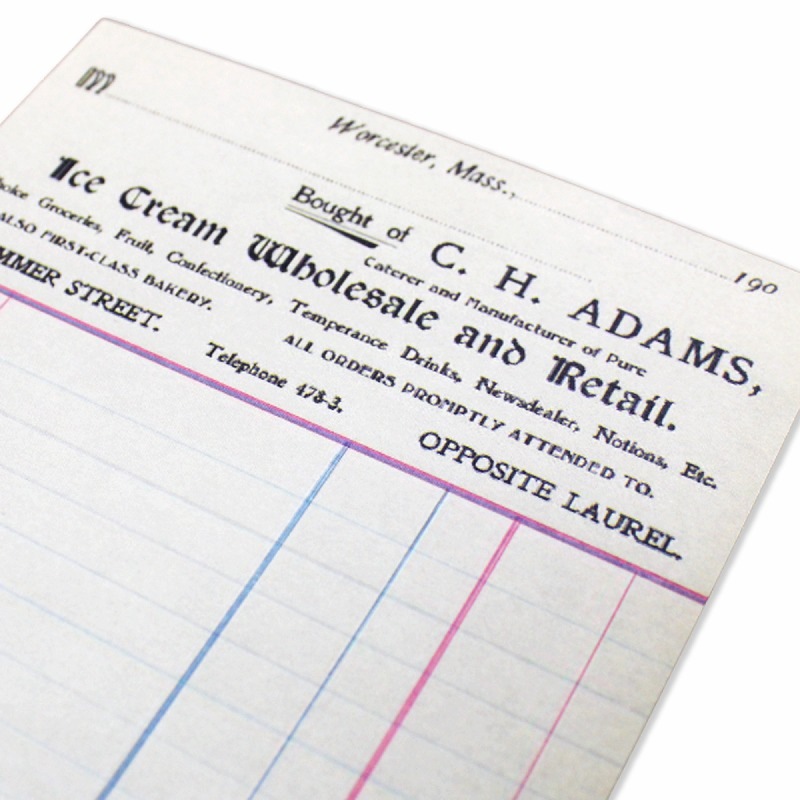 M
Worcester, Mass., 190
Bought of C. H. ADAMS,
Caterer and Manufacturer of Pure
Ice Cream Wholesale and Retail.
Groceries, Fruit, Confectionery, Temperance Drinks, Newsdealer, Notions, Etc.
ALSO FIRST-CLASS BAKERY. ALL ORDERS PROMPTLY ATTENDED TO.
STREET. Telephone 478-3. OPPOSITE LAUREL.